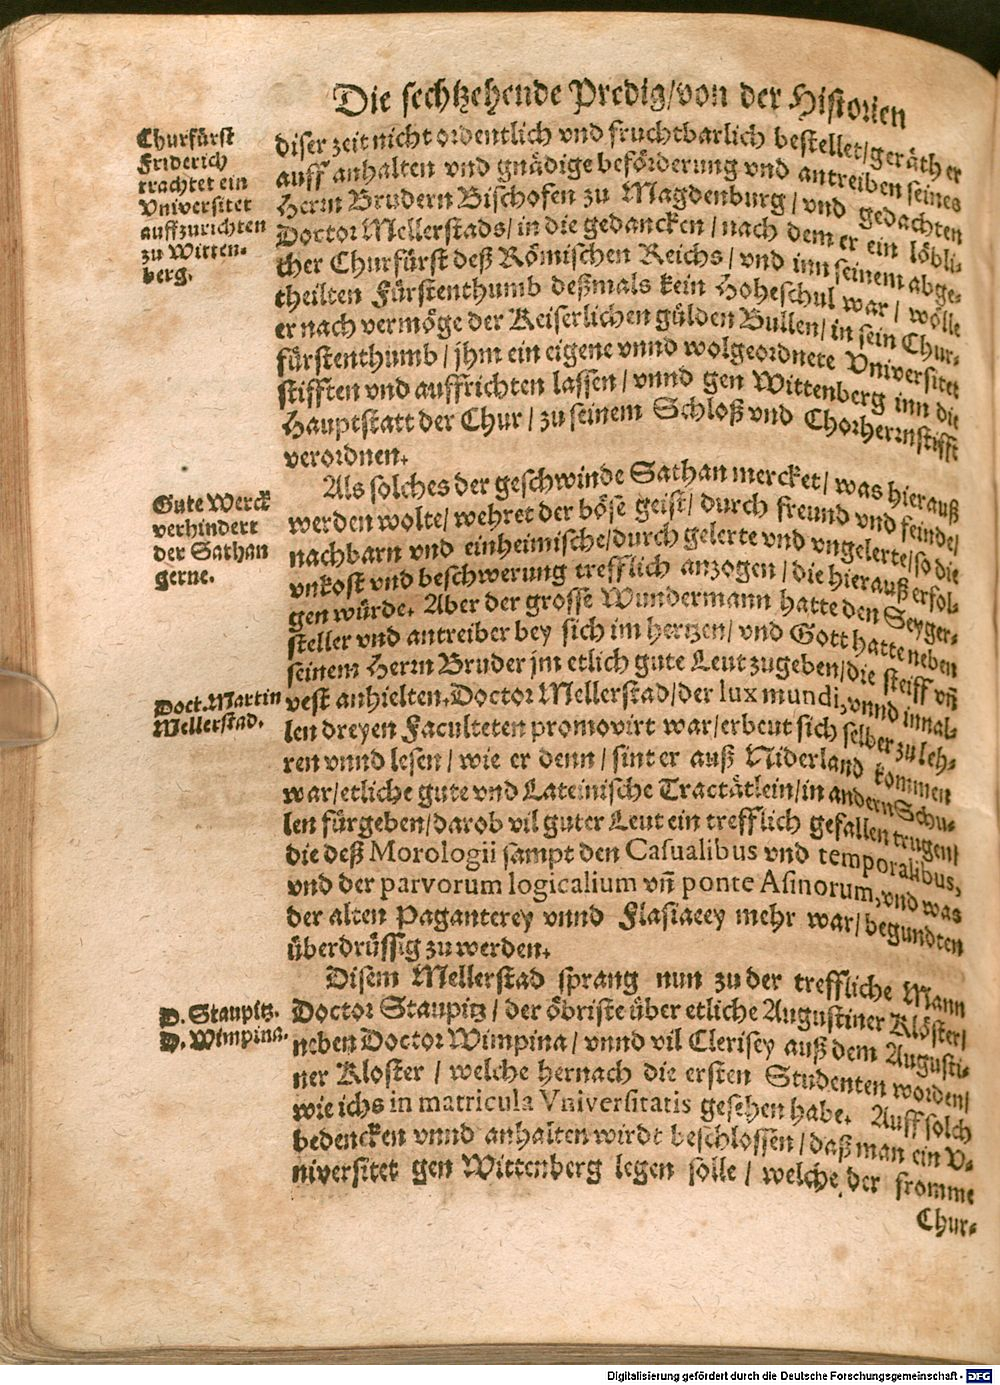 Die sechtzehende Predig/von der Historien
Churfürst
Friderich
trachtet ein
Vniversitet
auffzurichten
zu Witten-
berg.
diser zeit nicht ordentlich vnd fruchtbarlich bestellet/geräth er
auff anhalten vnd gnädige beförderung vnd antreiben seines
Herrn Brudern Bischofen zu Magdenburg/vnd gedachten
Doctor Mellerstads/in die gedancken/nach dem er ein löbli-
cher Churfürst deß Römischen Reichs/vnd inn seinem abge-
theilten Fürstenthumb deßmals kein Hoheschul war/wölle
er nach vermöge der Keiserlichen gülden Bullen/in sein Chur-
fürstenthumb/jhm ein eigene vnnd wolgeordnete Vniversitet
stifften vnd auffrichten lassen/vnnd gen Wittenberg inn die
Hauptstatt der Chur/zu seinem Schloß vnd Chorherrnstifft
verordnen.
Gute Werck
verhindert
der Sathan
gerne.
Als solches der geschwinde Sathan mercket/was hierauß
werden wolte/wehret der böse geist/durch freund vnd feinde/
nachbarn vnd einheimische/durch gelerte vnd vngelerte/so die
vnkost vnd beschwerung trefflich anzogen/die hierauß erfol-
gen würde. Aber der grosse Wundermann hatte den Seyger-
steller vnd antreiber bey sich im hertzen/vnd Gott hatte neben
seinem Herrn Bruder jm etlich gute Leut zugeben/die steiff vñ
Doct. Martin
Mellerstad.
vest anhielten. Doctor Mellerstad/der lux mundi, vnnd inn al-
len dreyen Faculteten promovirt war/erbeut sich selber zu leh-
ren vnnd lesen/wie er denn/sint er auß Niderland kommen
war/etliche gute vnd Lateinische Tractätlein/in andern Schu-
len fürgeben/darob vil guter Leut ein trefflich gefallen trugen/
die deß Morologii sampt den Casualibus vnd temporalibus,
vnd der parvorum logicalium vñ ponte Asinorum, vnd was
der alten Paganterey vnnd Flasiacey mehr war/begundten
überdrüssig zu werden.
D. Staupitz.
D. Wimpina.
Disem Mellerstad sprang nun zu der treffliche Mann
Doctor Staupitz/der öbriste über etliche Augustiner Klöster/
neben Doctor Wimpina/vnnd vil Clerisey auß dem Augusti-
ner Kloster/welche hernach die ersten Studenten worden/
wie ichs in matricula Vniversitatis gesehen habe. Auff solch
bedencken vnnd anhalten wirdt beschlossen/daß man ein V-
niversitet gen Wittenberg legen sölle/welche der fromme
Chur-
Digitalisierung gefördert durch die Deutsche Forschungsgemeinschaft - DFG